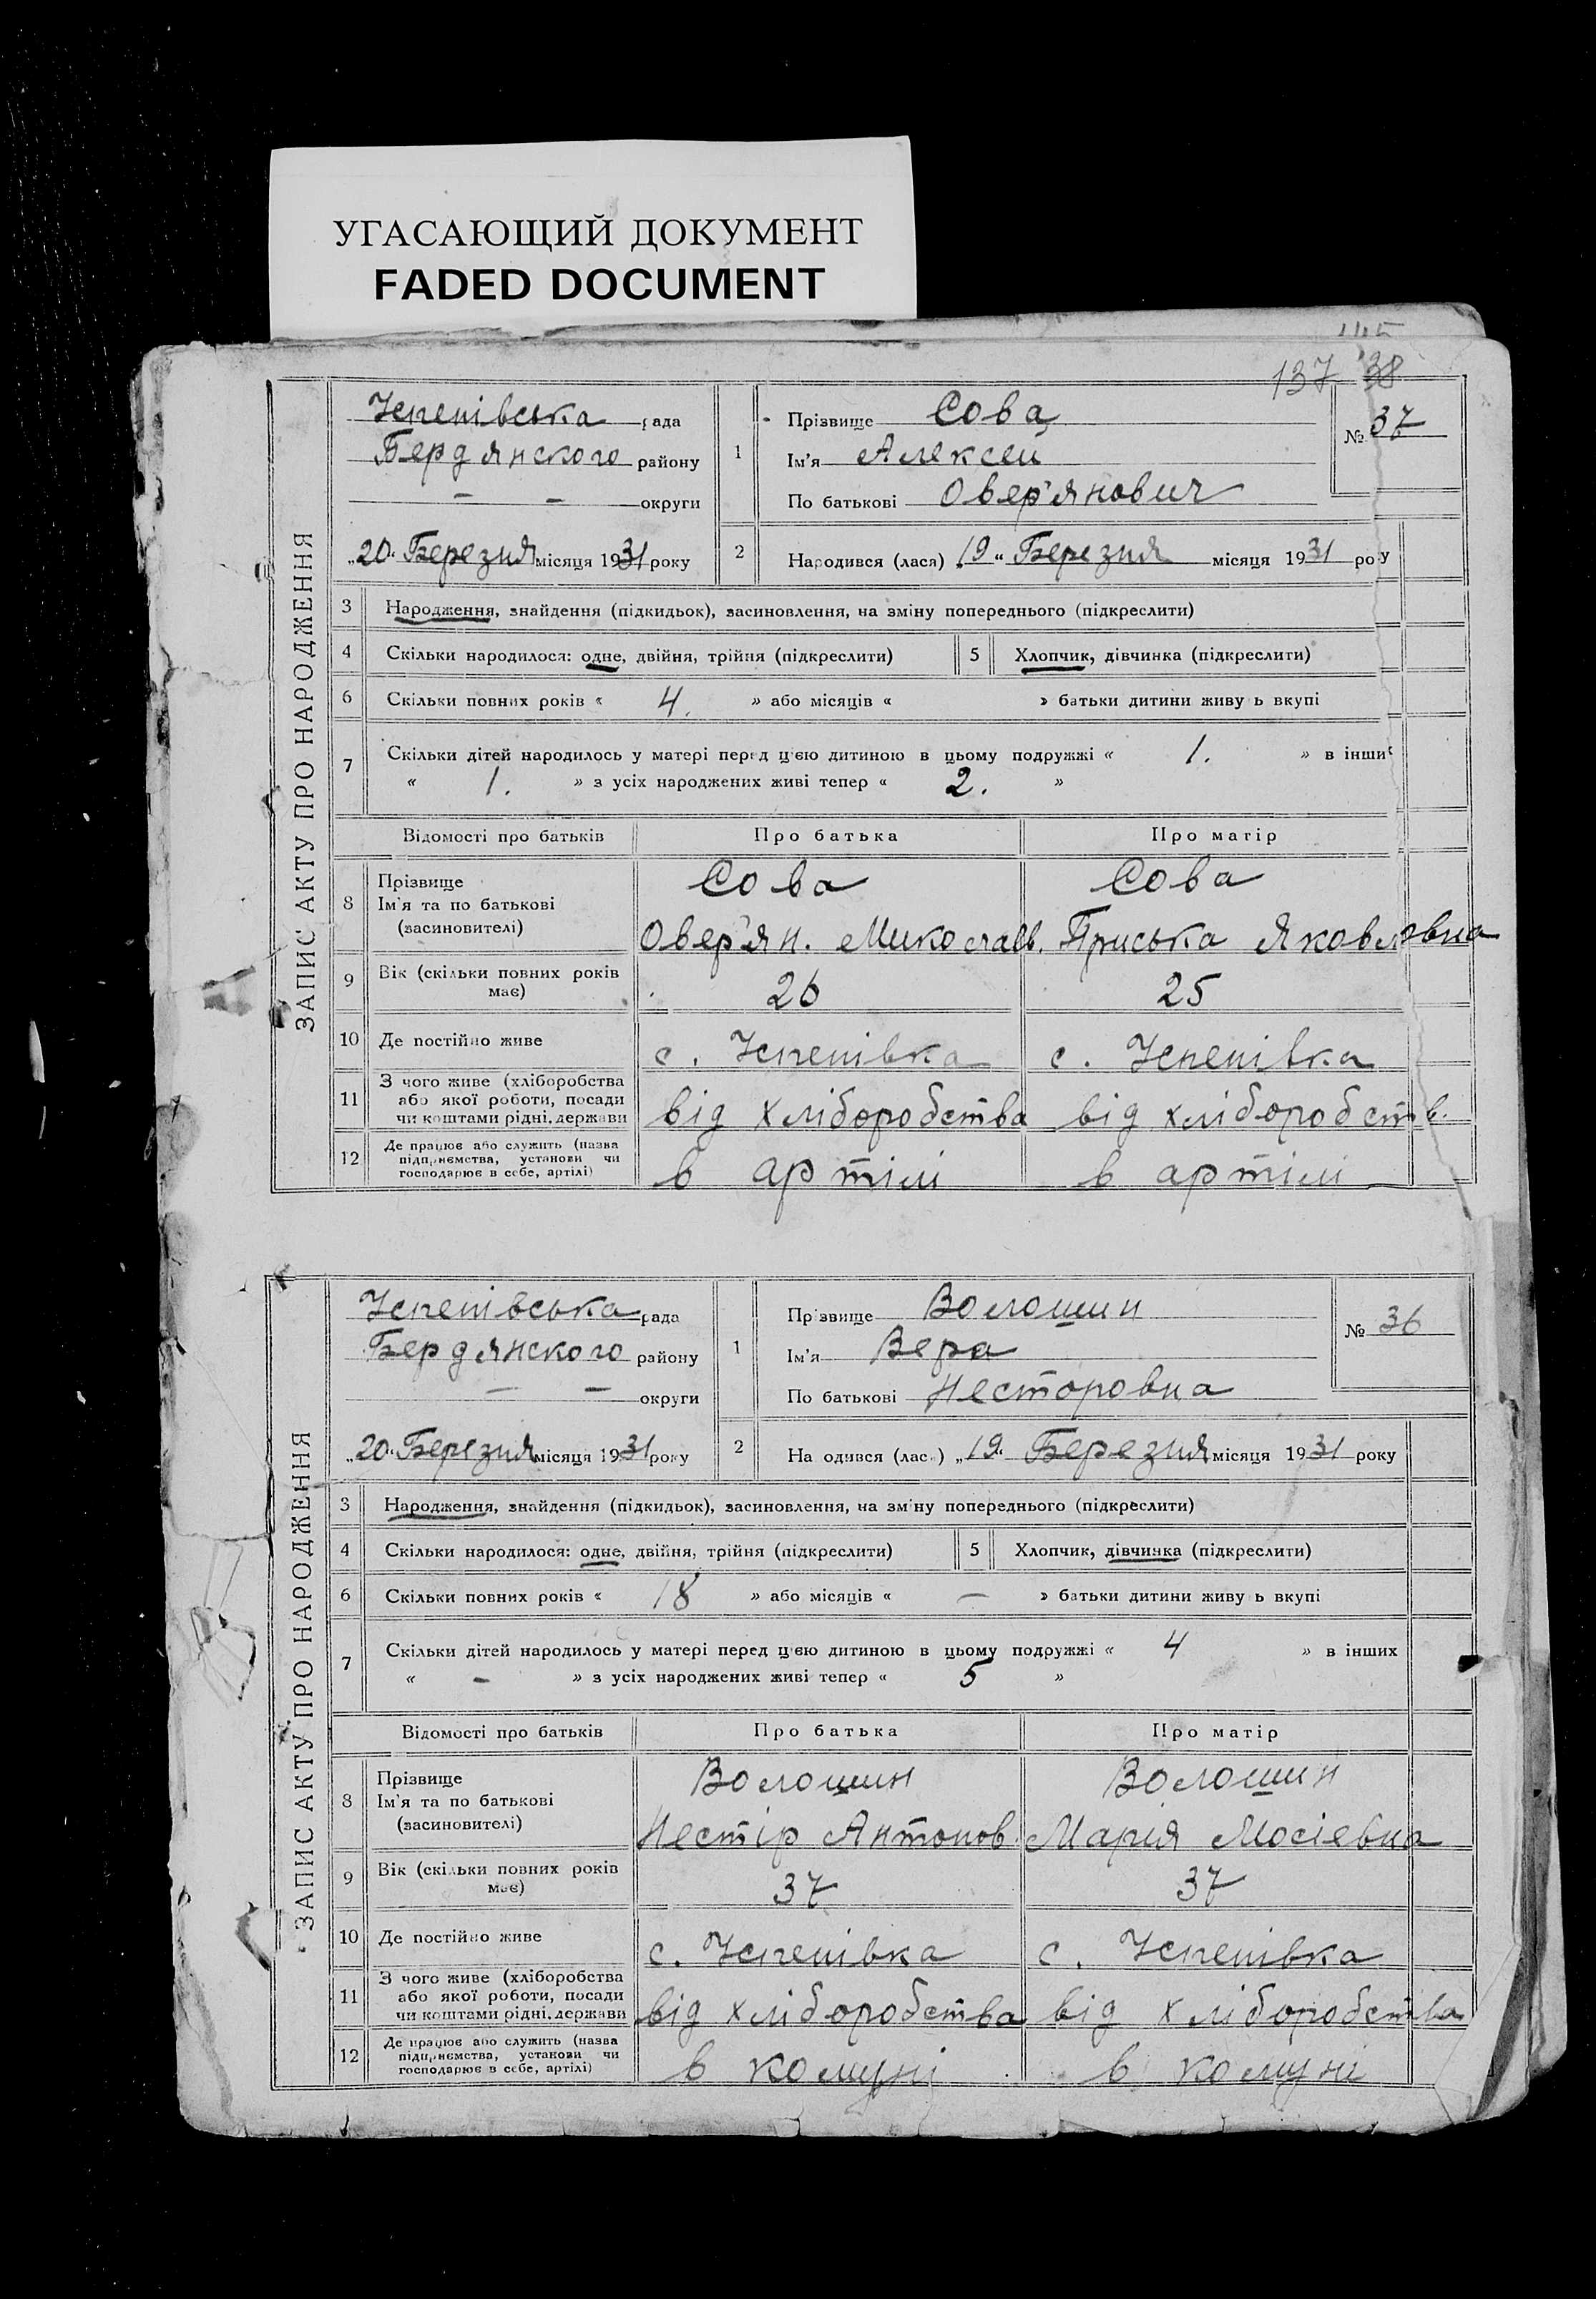 УГАСАЮЩИЙ ДОКУМЕНТ
FADED DOCUMENT
137 38
ЗАПИС АКТУ ПРО НАРОДЖЕННЯ
Успенівська рада
Бердянского району
— — округи
1 Прізвище Сова
Ім'я Алексей
По батькові Овер'янович
№ 37
„20" Березня місяця 1931 року
2 Народився (лася) „19" Березня місяця 1931 року
3 Народження, знайдення (підкидьок), засиновлення, на зміну попереднього (підкреслити)
4 Скільки народилося: одне, двійня, трійня (підкреслити) 5 Хлопчик, дівчинка (підкреслити)
6 Скільки повних років « 4. » або місяців « » батьки дитини живу ь вкупі
7 Скільки дітей народилось у матері перед цією дитиною в цьому подружжі « 1. » в інши
« 1. » з усіх народжених живі тепер « 2. »
Відомості про батьків Про батька Про матір
8 Прізвище Сова Сова
Ім'я та по батькові
(засиновителі) Овер'ян. Миколаев. Приська Яковловна
9 Вік (скільки повних років має) 26 25
10 Де постійно живе с. Успенівка с. Успенівка
11 З чого живе (хліборобства
або якої роботи, посади
чи коштами рідні, держави від хліборобства від хліборобств.
12 Де працює або служить (назва
підприємства, установи чи
господарює в себе, артілі) в артілі в артілі
ЗАПИС АКТУ ПРО НАРОДЖЕННЯ
Успенівська рада
Бердянского району
— — округи
1 Прізвище Волошин
Ім'я Вера
По батькові Несторовна
№ 36
„20" Березня місяця 1931 року
2 На одився (лас ) „19" Березня місяця 1931 року
3 Народження, знайдення (підкидьок), засиновлення, на зміну попереднього (підкреслити)
4 Скільки народилося: одне, двійня, трійня (підкреслити) 5 Хлопчик, дівчинка (підкреслити)
6 Скільки повних років « 18 » або місяців « — » батьки дитини живу ь вкупі
7 Скільки дітей народилось у матері перед цією дитиною в цьому подружжі « 4 » в інших
« - » з усіх народжених живі тепер « 5 »
Відомості про батьків Про батька Про матір
8 Прізвище Волошин Волошин
Ім'я та по батькові
(засиновителі) Нестір Антонов. Марія Мосіевна
9 Вік (скільки повних років має) 37 37
10 Де постійно живе с. Успенівка с. Успенівка
11 З чого живе (хліборобства
або якої роботи, посади
чи коштами рідні, держави від хліборобства від хліборобства
12 Де працює або служить (назва
підприємства, установи чи
господарює в себе, артілі) в комуні в комуні